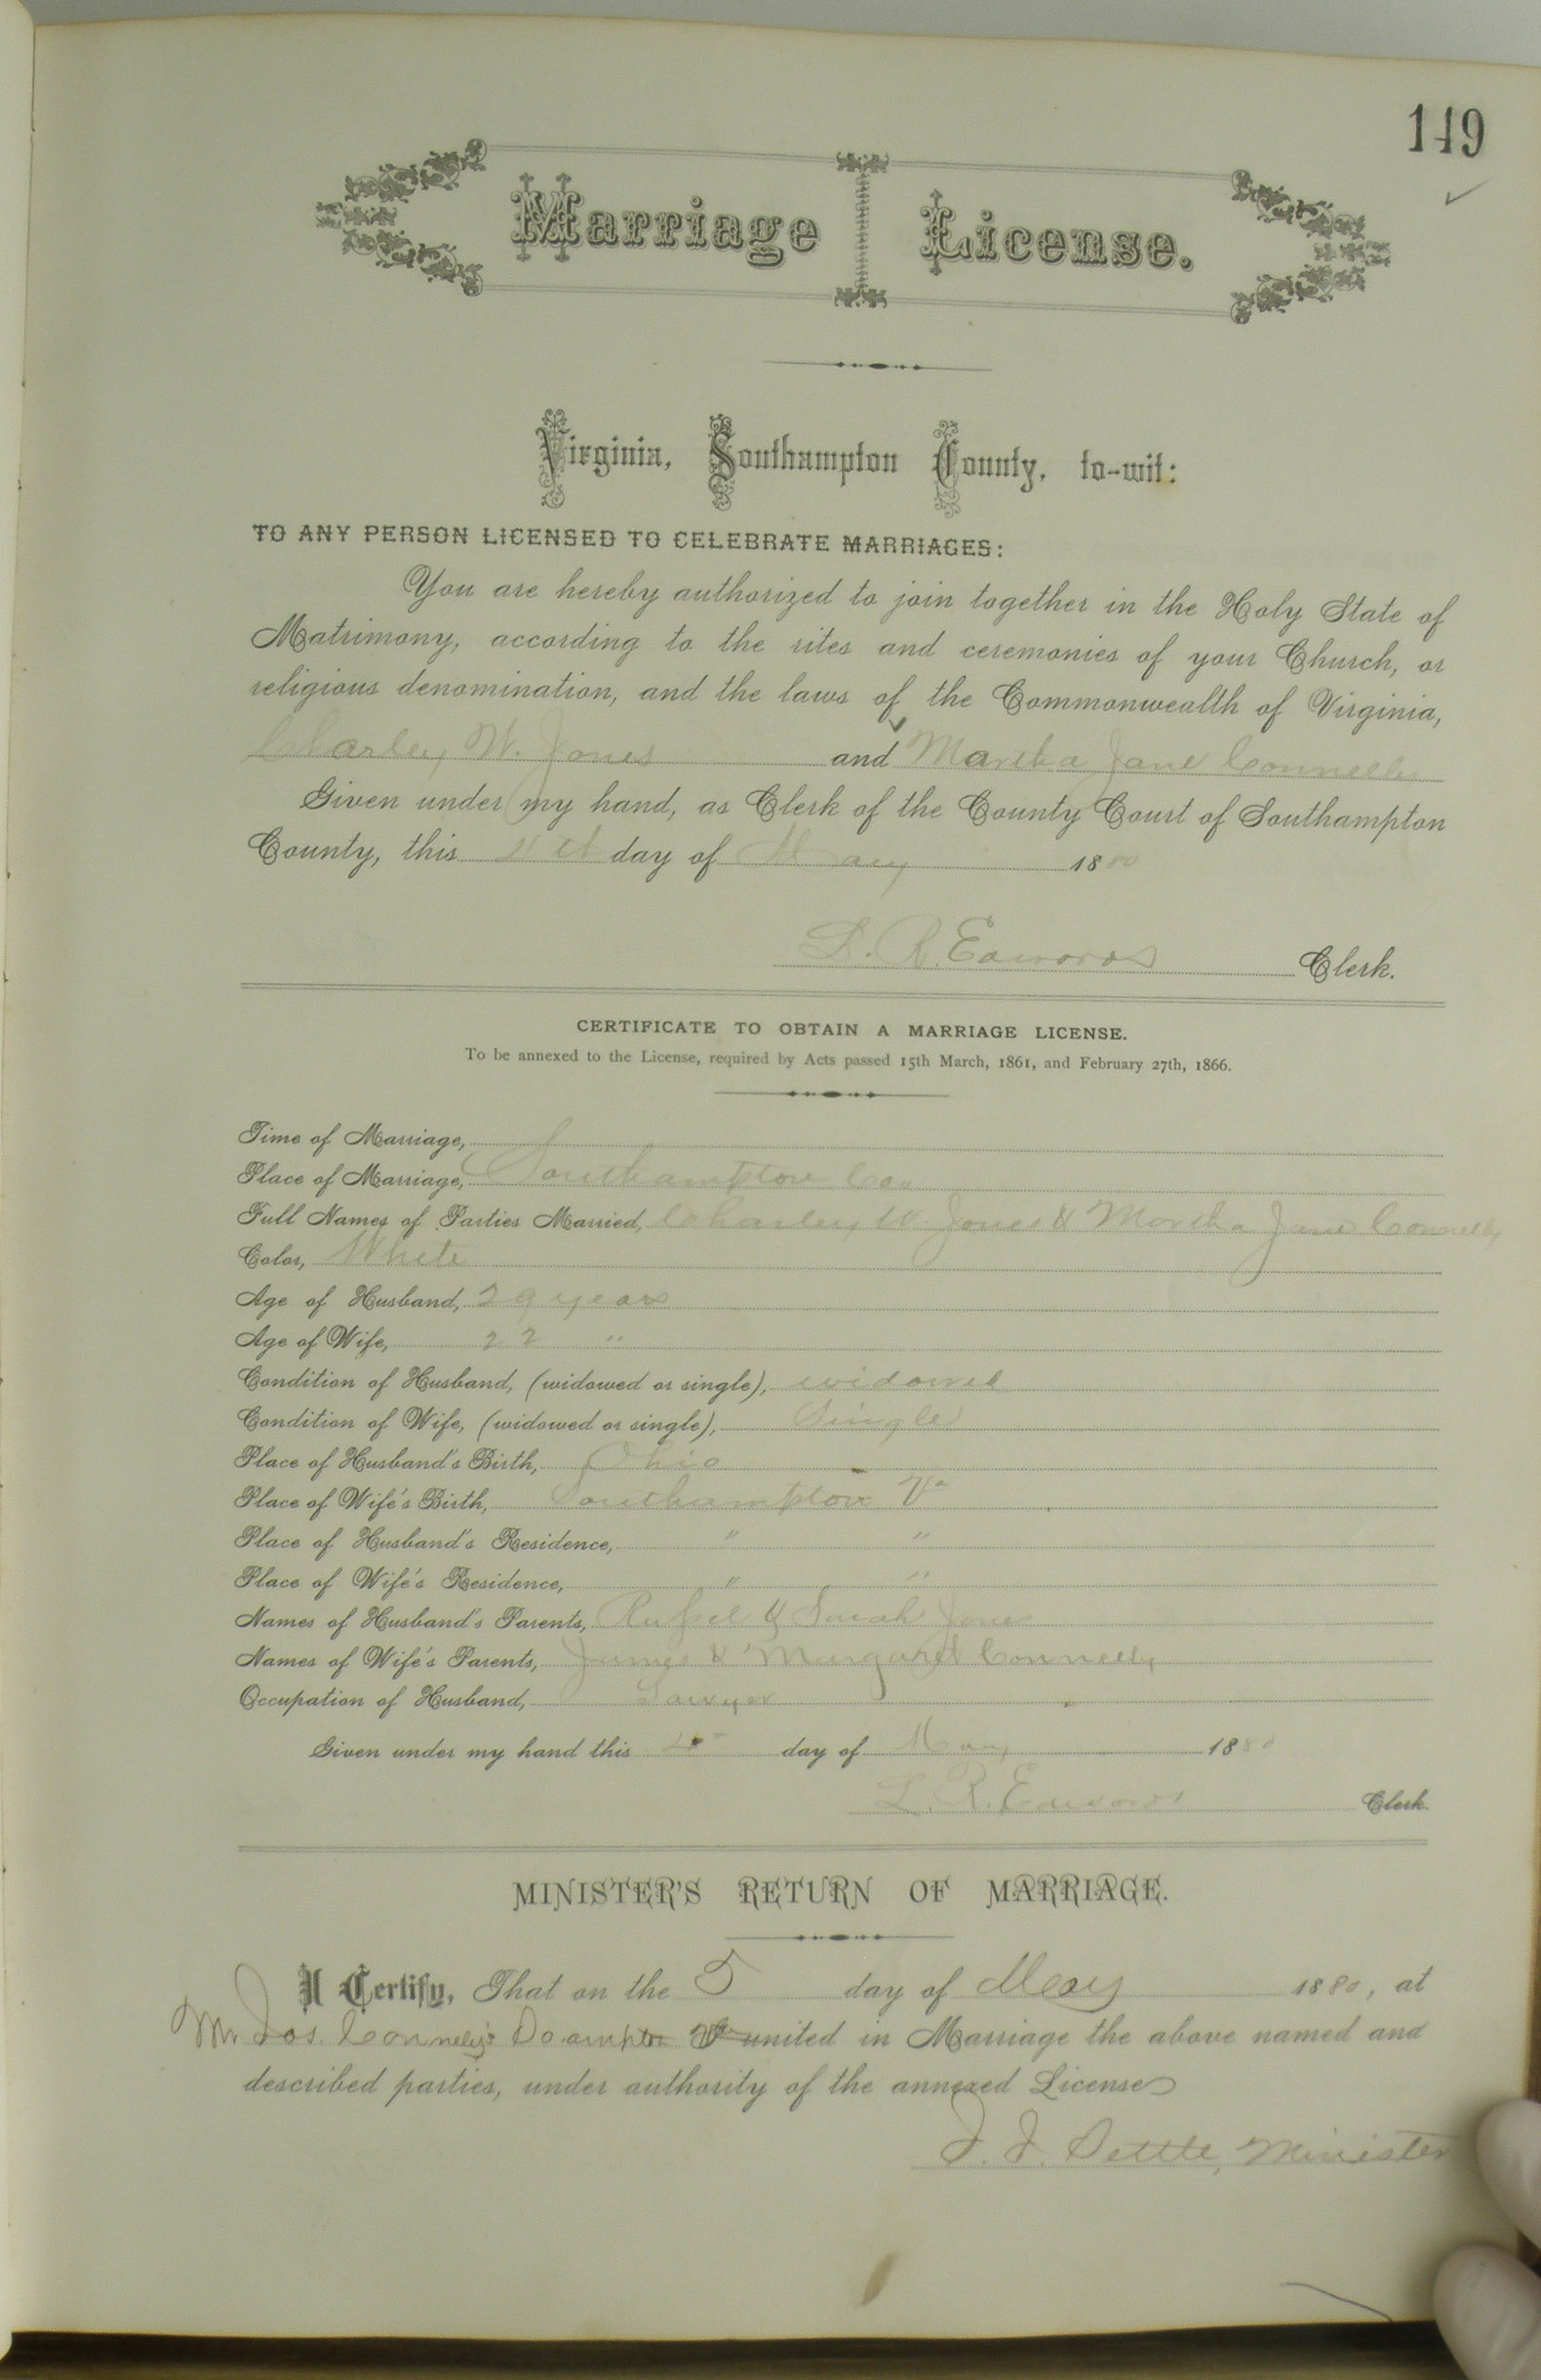 149
Marriage License.
Virginia, Southampton County, to-wit:
TO ANY PERSON LICENSED TO CELEBRATE MARRIAGES:
You are hereby authorized to join together in the Holy State of
Matrimony, according to the rites and ceremonies of your Church, or
religious denomination, and the laws of the Commonwealth of Virginia,
Charley W. Jones and Martha Jane Connelly
Given under my hand, as Clerk of the County Court of Southampton
County, this 4th day of May 1880
L. R. Edwards Clerk.
CERTIFICATE TO OBTAIN A MARRIAGE LICENSE.
To be annexed to the License, required by Acts passed 15th March, 1861, and February 27th, 1866.
Time of Marriage,
Place of Marriage, Southampton Co
Full Names of Parties Married, Charley W. Jones & Martha Jane Connelly
Color, White
Age of Husband, 29 years
Age of Wife, 22 "
Condition of Husband, (widowed or single), widowed
Condition of Wife, (widowed or single), Single
Place of Husband's Birth, Ohio
Place of Wife's Birth, Southampton Va
Place of Husband's Residence, " "
Place of Wife's Residence, " "
Names of Husband's Parents, Russel & Sarah Jones
Names of Wife's Parents, James & Margaret Connelly
Occupation of Husband, Sawyer
Given under my hand this 4th day of May 1880
L. R. Edwards Clerk.
MINISTER'S RETURN OF MARRIAGE.
I Certify, That on the 5 day of May 1880, at
Mr Jas. Connelly's united in Marriage the above named and
described parties, under authority of the annexed License
Minister